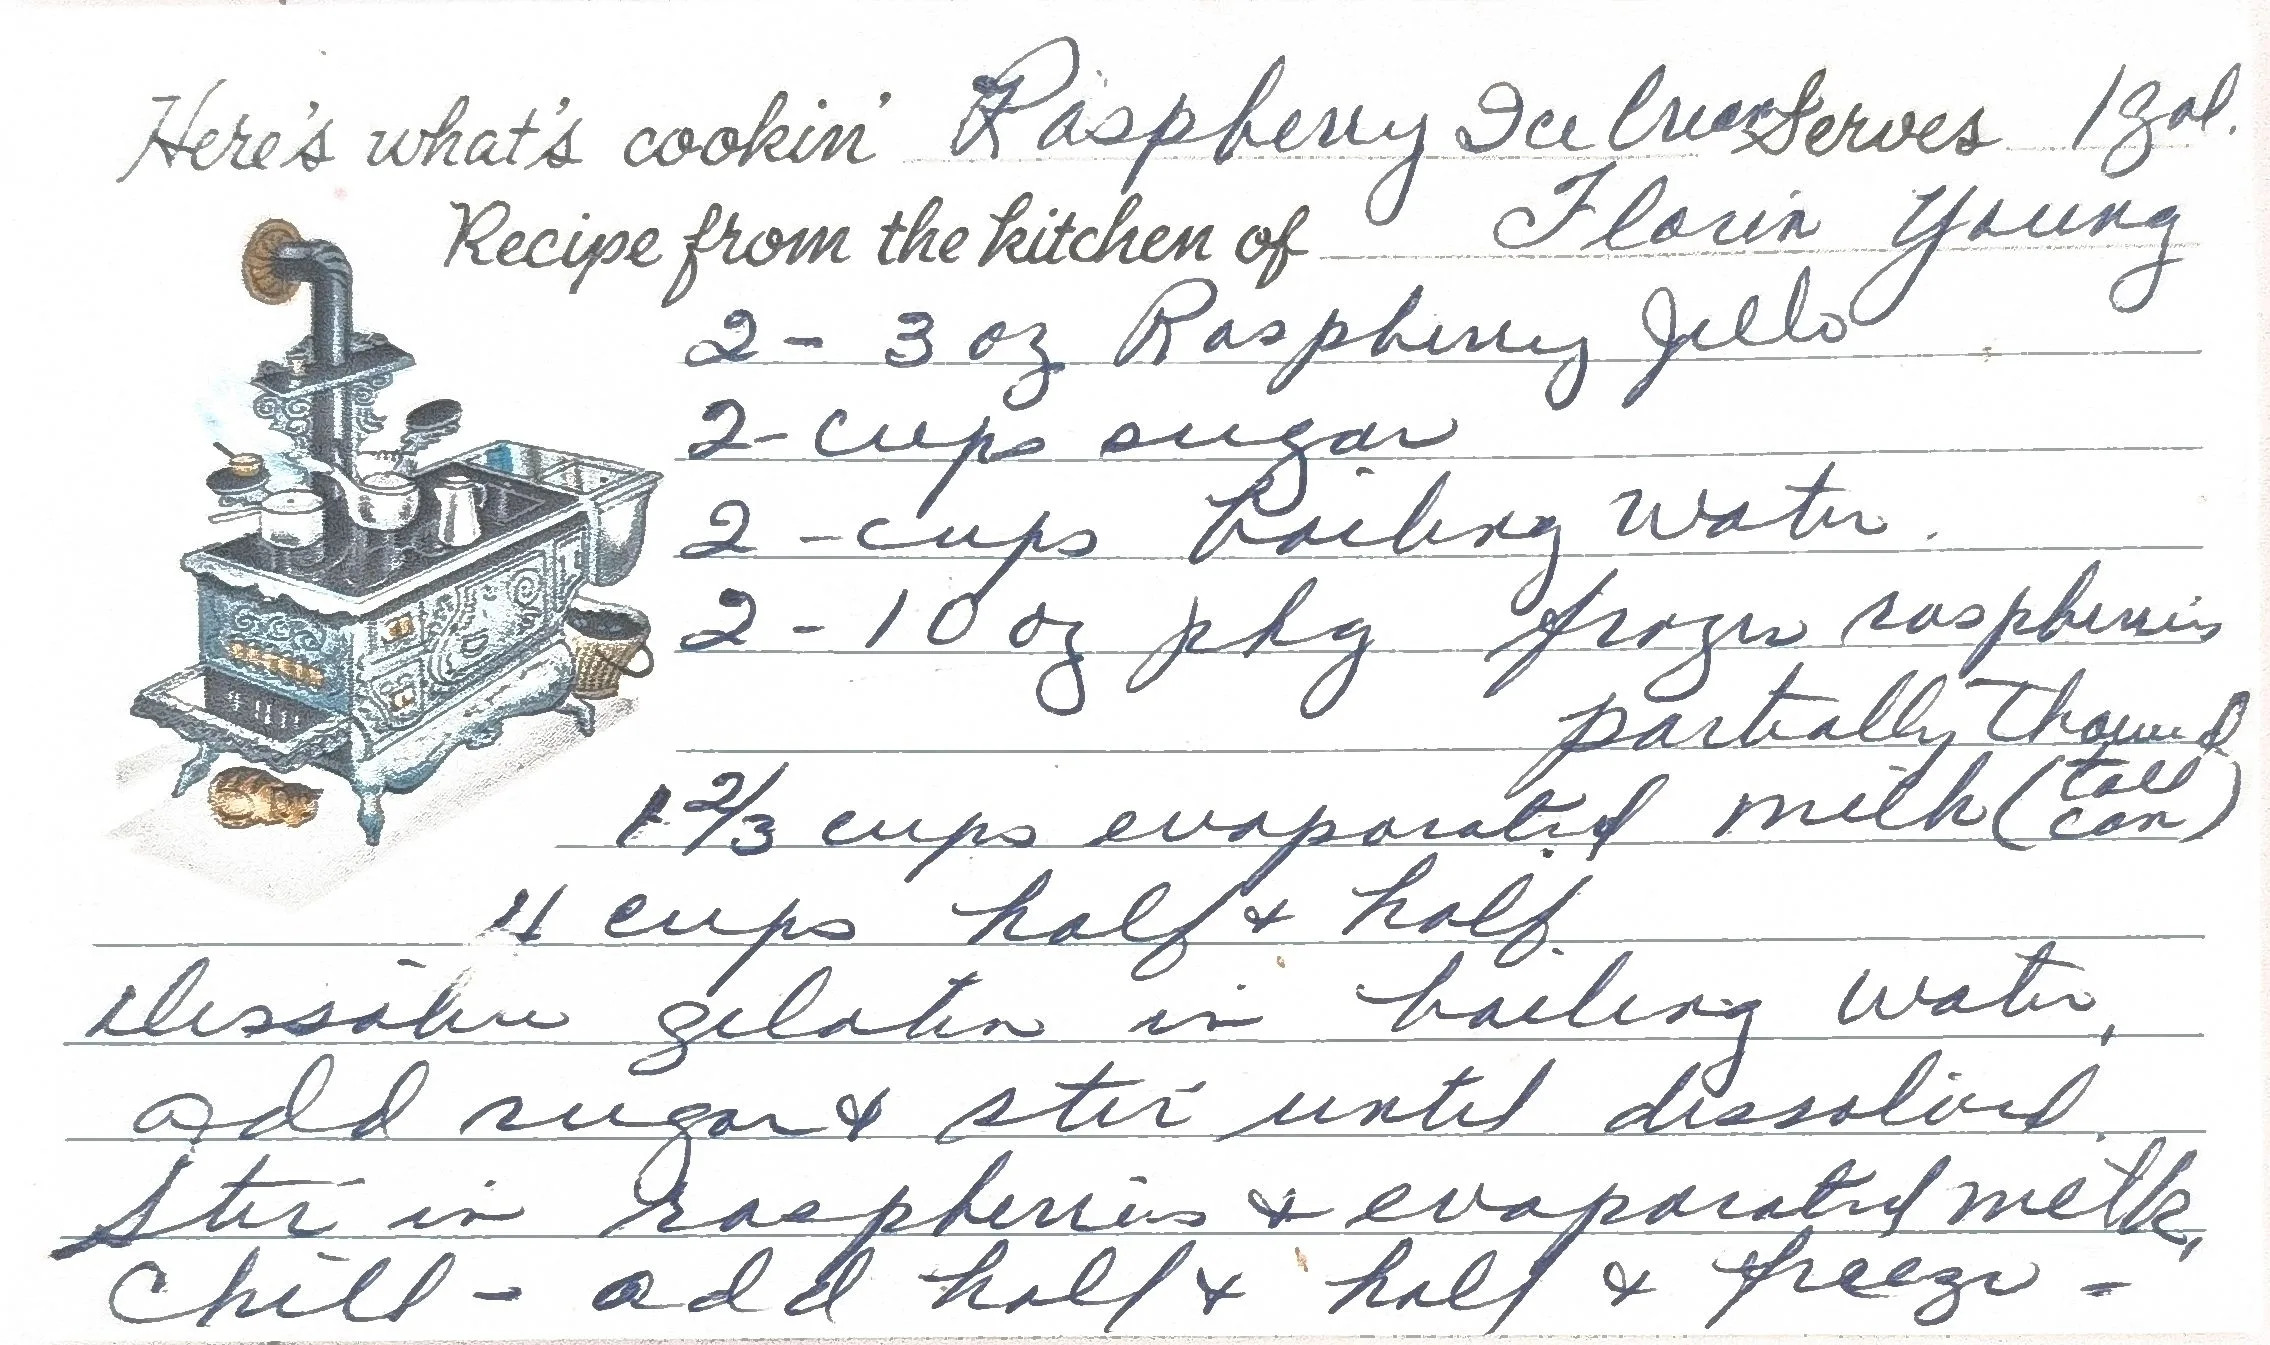 Here's what's cookin' Raspberry Ice Cream Serves 1 gal.
Recipe from the kitchen of Florin Young
2 - 3 oz Raspberry Jello
2 - cups sugar
2 - cups boiling water.
2 - 10 oz pkg frozen raspberries
partially thawed
1 2/3 cups evaporated milk (tall can)
4 cups half & half
Dissolve gelatin in boiling water,
add sugar & stir until dissolved.
Stir in raspberries & evaporated milk,
Chill - add half & half & freeze -